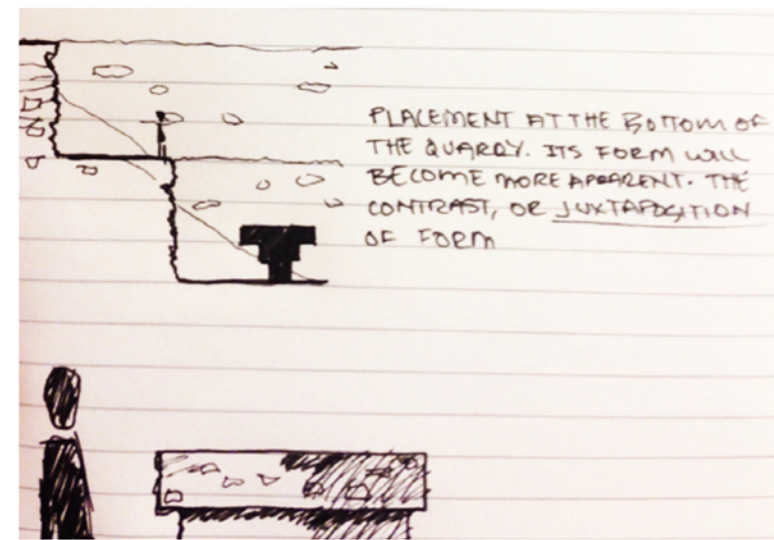 PLACEMENT AT THE BOTTOM OF
THE QUARRY. ITS FORM WILL
BECOME MORE APPARENT. THE
CONTRAST, OR JUXTAPOSITION
OF FORM